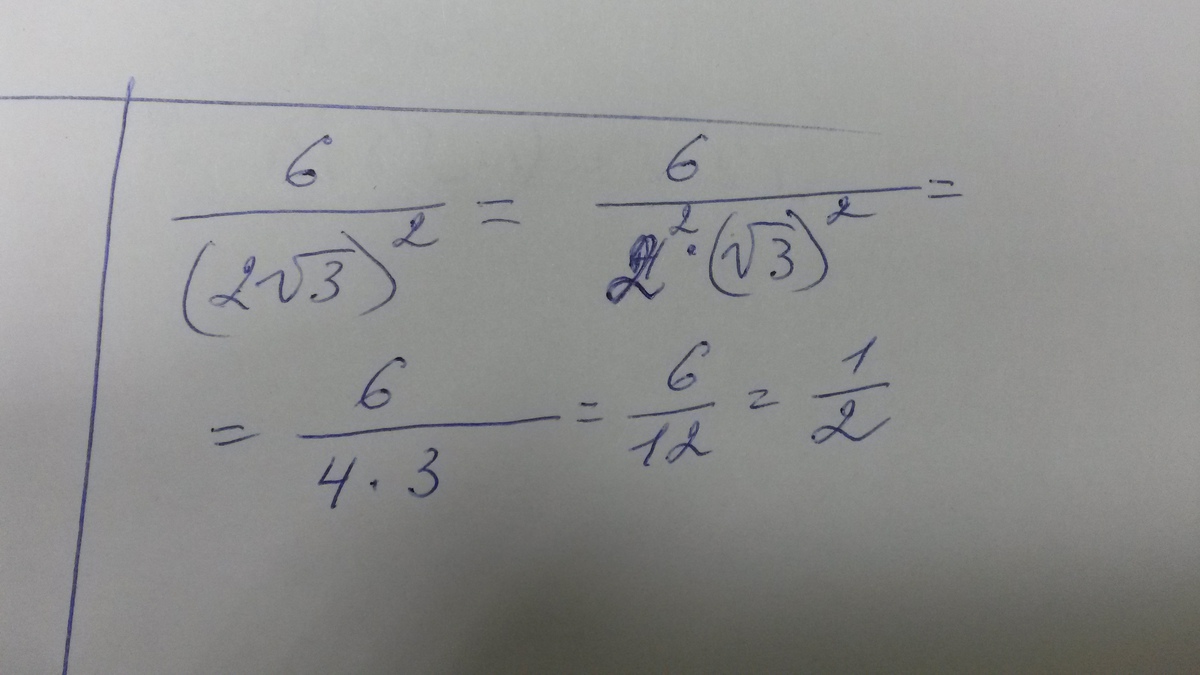 6/(2√3)² = 6/(2²·(√3)²) =
= 6/(4·3) = 6/12 = 1/2